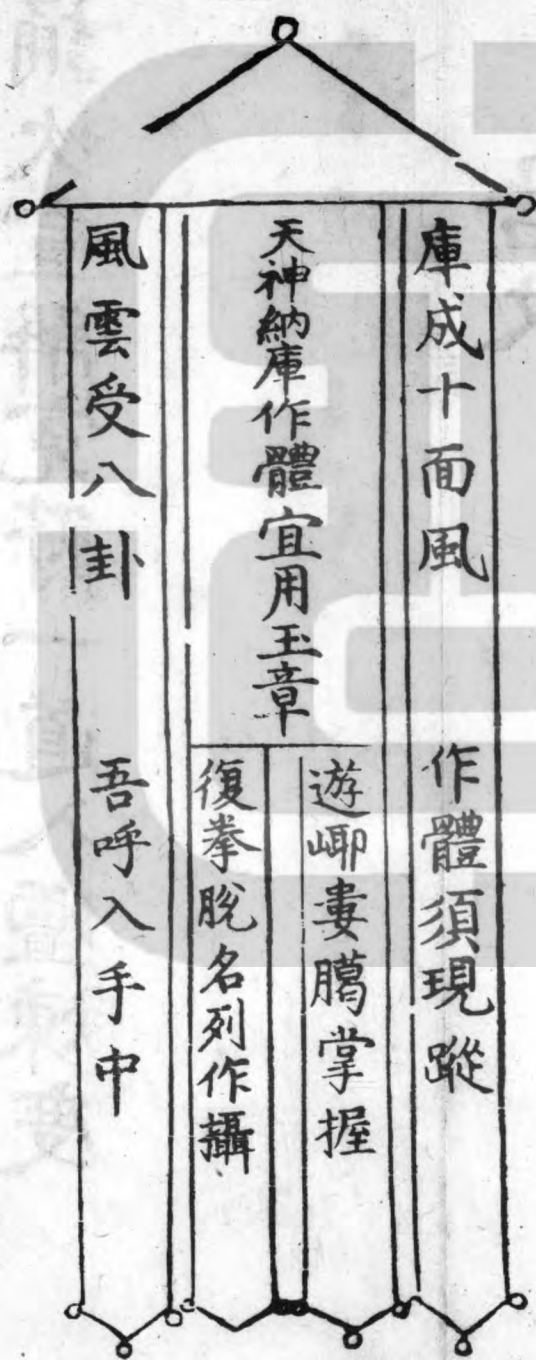 庫成十面風　作體須現蹤
天神納庫作體宜用玉章
遊𡶨婁臈掌握
復拳脫名列作攝
風雲受八卦　吾呼入手中